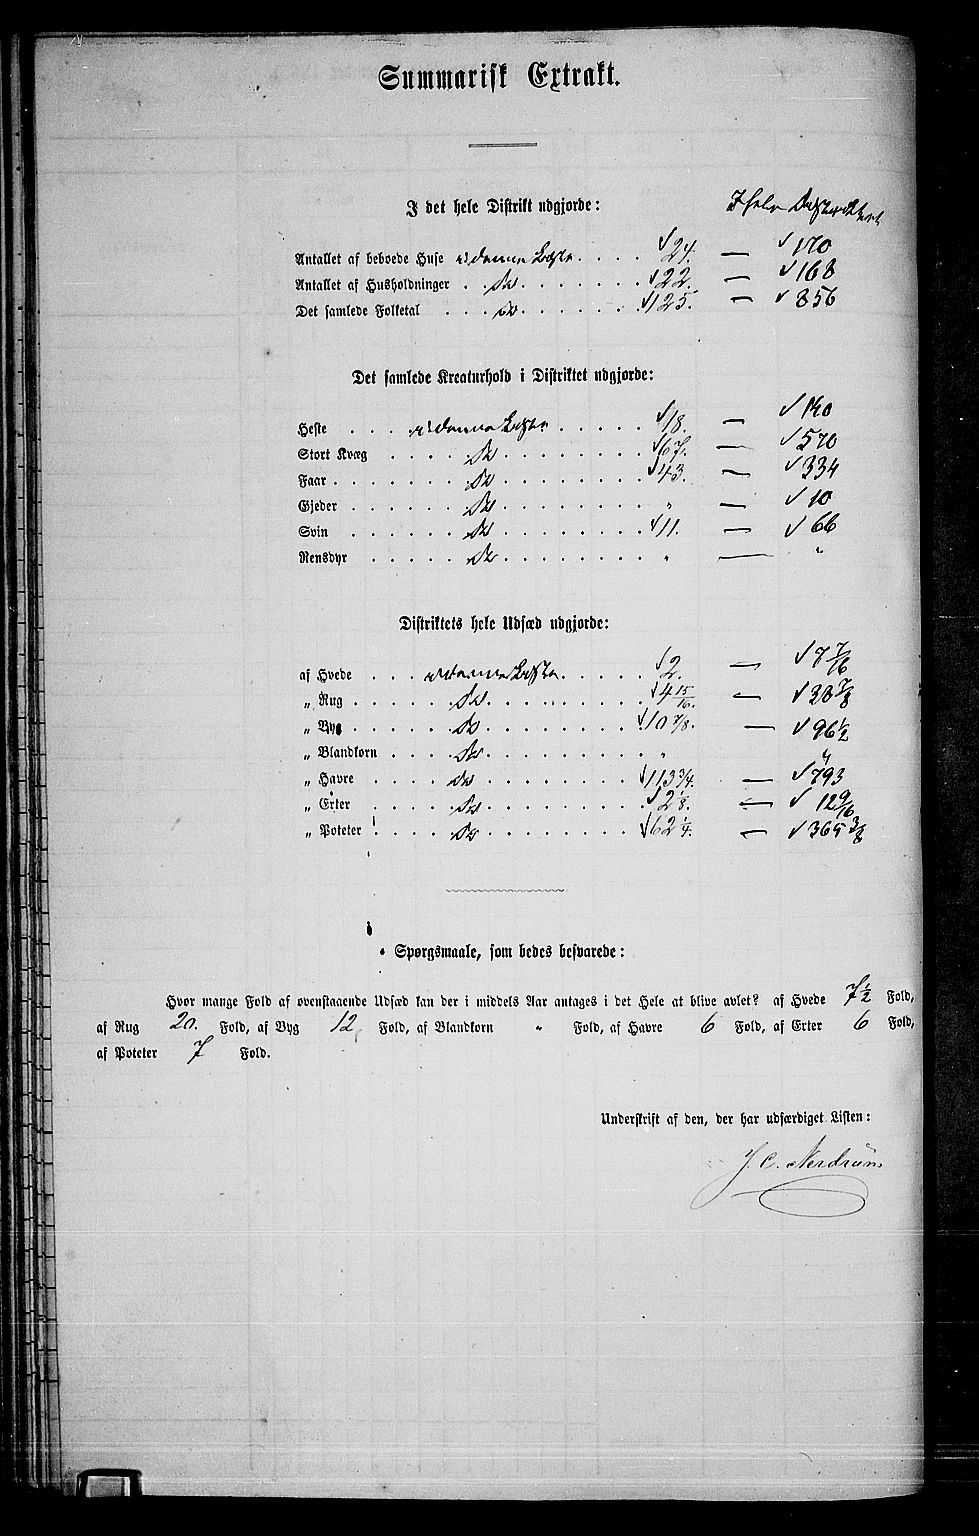 Summarisk Extrakt.
I det hele Distrikt udgjorde: I hele Distriktet
Antallet af beboede Huse i denne Liste . . . . 24. — 170
Antallet af Husholdninger . . Do . . . . . . . 22. — 168
Det samlede Folketal . . . . Do . . . . . . . 125. — 856
Det samlede Kreaturhold i Distriktet udgjorde:
Heste . . . . i denne Liste . . . . . . 18. — 140
Stort Kvæg . . . . . Do . . . . . . . . . 67. — 570
Faar . . . . . . . . Do . . . . . . . . . 43. — 334
Gjeder . . . . . . . Do . . . . . . . . . " — 10
Svin . . . . . . . . Do . . . . . . . . . 11. — 66
Rensdyr . . . . . . Do . . . . . . . . . " — "
Distriktets hele Udsæd udgjorde:
af Hvede . . . i denne Liste . . . . . 2. — 7/16
„ Rug . . . . . . Do . . . . . . . . 4 15/16. — 7/8
„ Byg . . . . . . Do . . . . . . . . 10 7/8. — 96 1/2
„ Blandkorn . . . . Do . . . . . . . . " "
„ Havre . . . . . Do . . . . . . . . 113 3/4. — 793
„ Erter . . . . . Do . . . . . . . . 2 1/8. — 12 9/16
„ Poteter . . . . . Do . . . . . . . . 62 1/4. — 365 3/8
Spørgsmaale, som bedes besvarede:
Hvor mange Fold af ovenstaaende Udsæd kan der i middels Aar antages i det Hele at blive avlet? af Hvede 7 1/2 Fold,
af Rug 20. Fold, af Byg 12 Fold, af Blandkorn " Fold, af Havre 6 Fold, af Erter 6 Fold,
af Poteter 7 Fold.
Underskrift af den, der har udfærdiget Listen:
J. C. Nerdrum